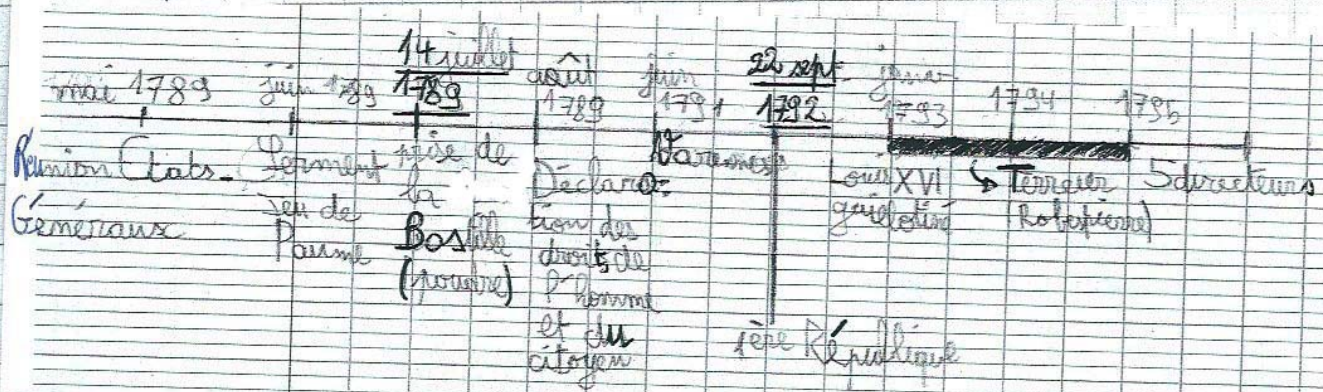 mai 1789
juin 1789
14 juillet
1789
août
1789
juin
1791
22 sept
1792
janv
1793
1794
1795
Réunion États-
Généraux
Serment
Jeu de
Paume
prise de
la
Bastille
(poudre)
Déclara-
tion des
droits de
l'homme
et du
citoyen
Varennes
1ère République
Louis XVI
guillotiné
Terreur
(Robespierre)
5 directeurs